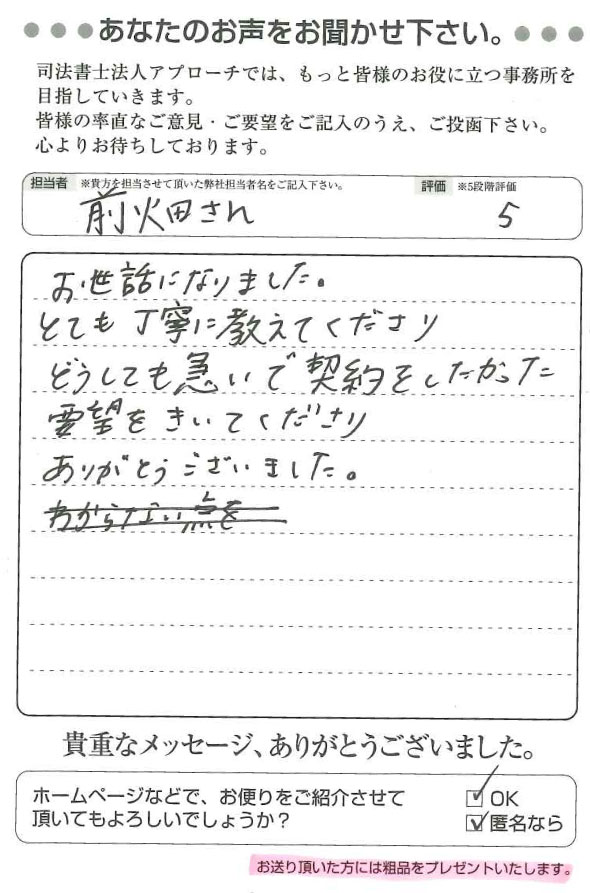 あなたのお声をお聞かせ下さい。
司法書士法人アプローチでは、もっと皆様のお役に立つ事務所を
目指していきます。
皆様の率直なご意見・ご要望をご記入のうえ、ご投函下さい。
心よりお待ちしております。
担当者 ※貴方を担当させて頂いた弊社担当者名をご記入下さい。 評価 ※5段階評価
前畑さん 5
お世話になりました。
とても丁寧に教えてくださり
どうしても急いで契約をしたかった
要望をきいてくださり
ありがとうございました。
わからない点を
貴重なメッセージ、ありがとうございました。
ホームページなどで、お便りをご紹介させて
頂いてもよろしいでしょうか？
OK
匿名なら
お送り頂いた方には粗品をプレゼントいたします。